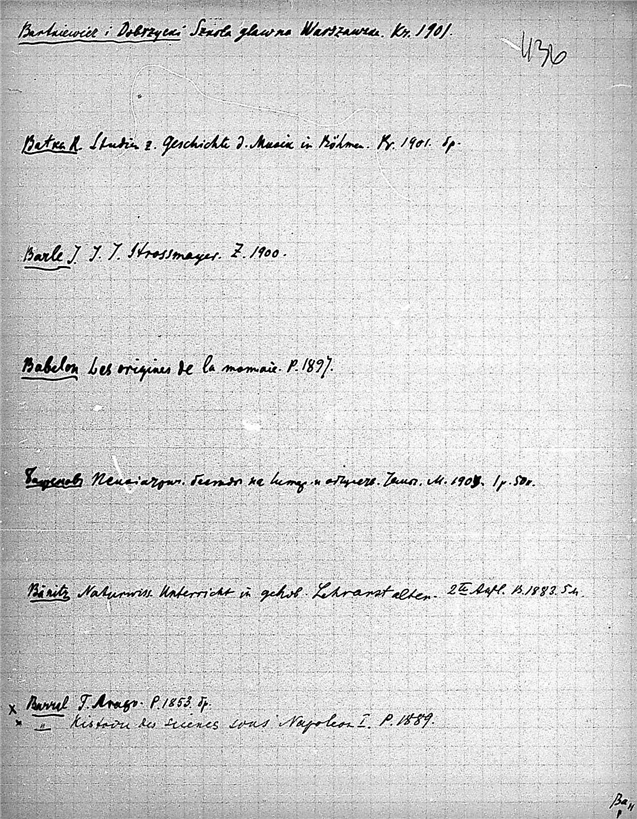 Bartkiewicz i Dobrzycki Szkoła glawna Warszawska. Kr. 1901.
436
Batka R. Studien z. Geschichte d. Musik in Böhmen. Pr. 1901.
Barle J. J. J. Strossmayer. Z. 1900.
Babelon Les origines de la monnaie. P. 1897.
на М. 1р. 50к.
Bänitz Naturwiss. Unterricht in gehob. Lehranstalten. 2te Aufl. B. 1883. 5 M.
x Barral F. Arago. P. 1853.
x " Histoire des sciences sous Napoleon I. P. 1889.
Ba